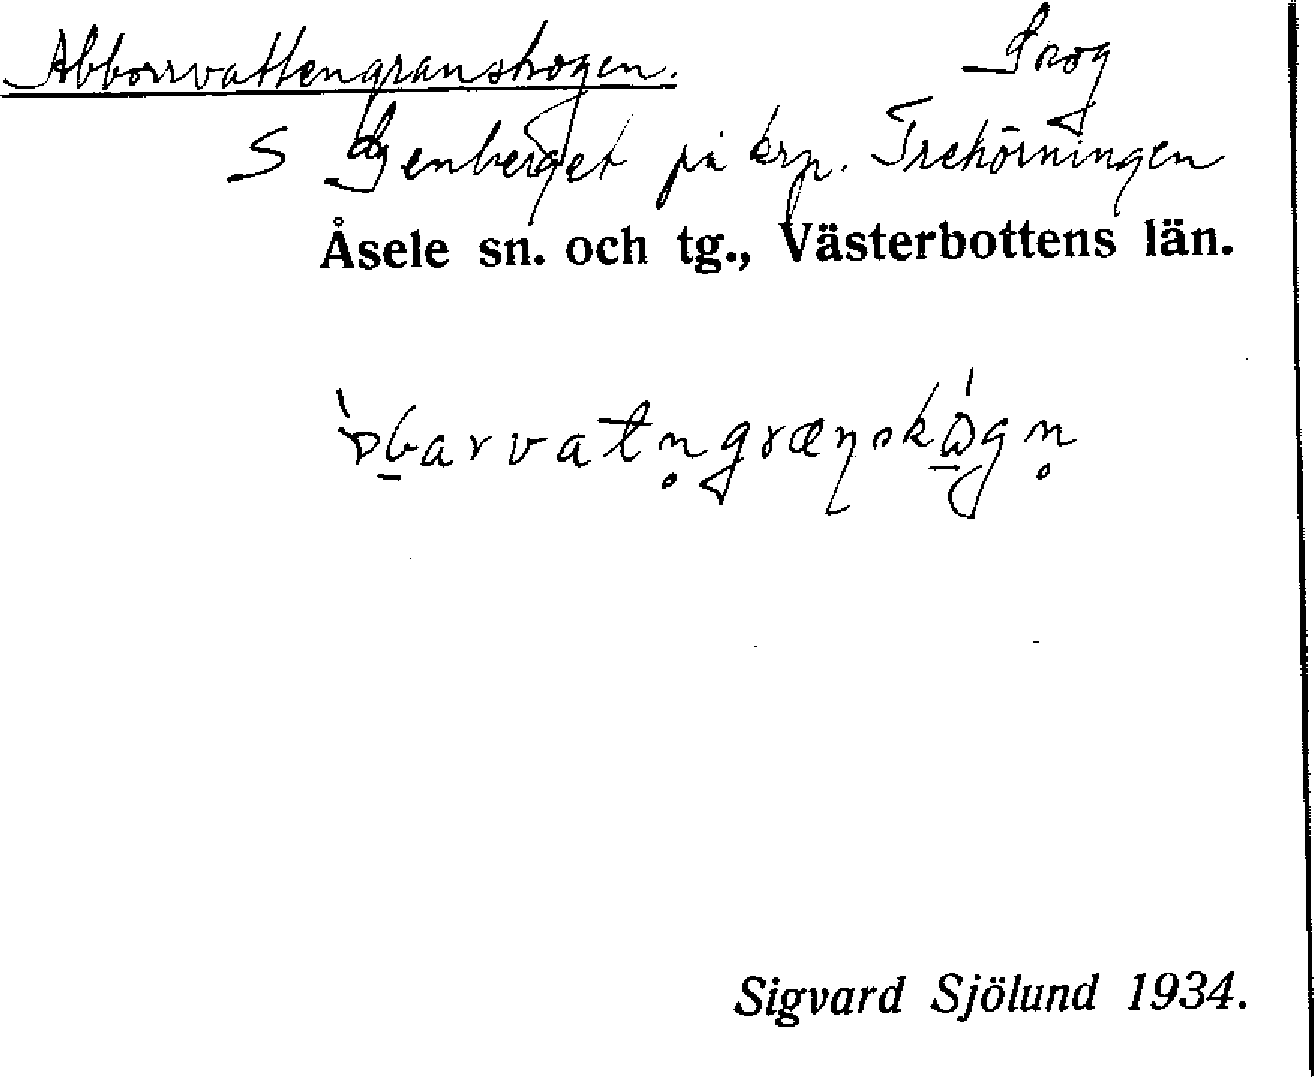 Abborrvattengranskogen. Skog
S Stenberget på krp. Trehörningen
Åsele sn. och tg., Västerbottens län.
Sigvard Sjölund 1934.